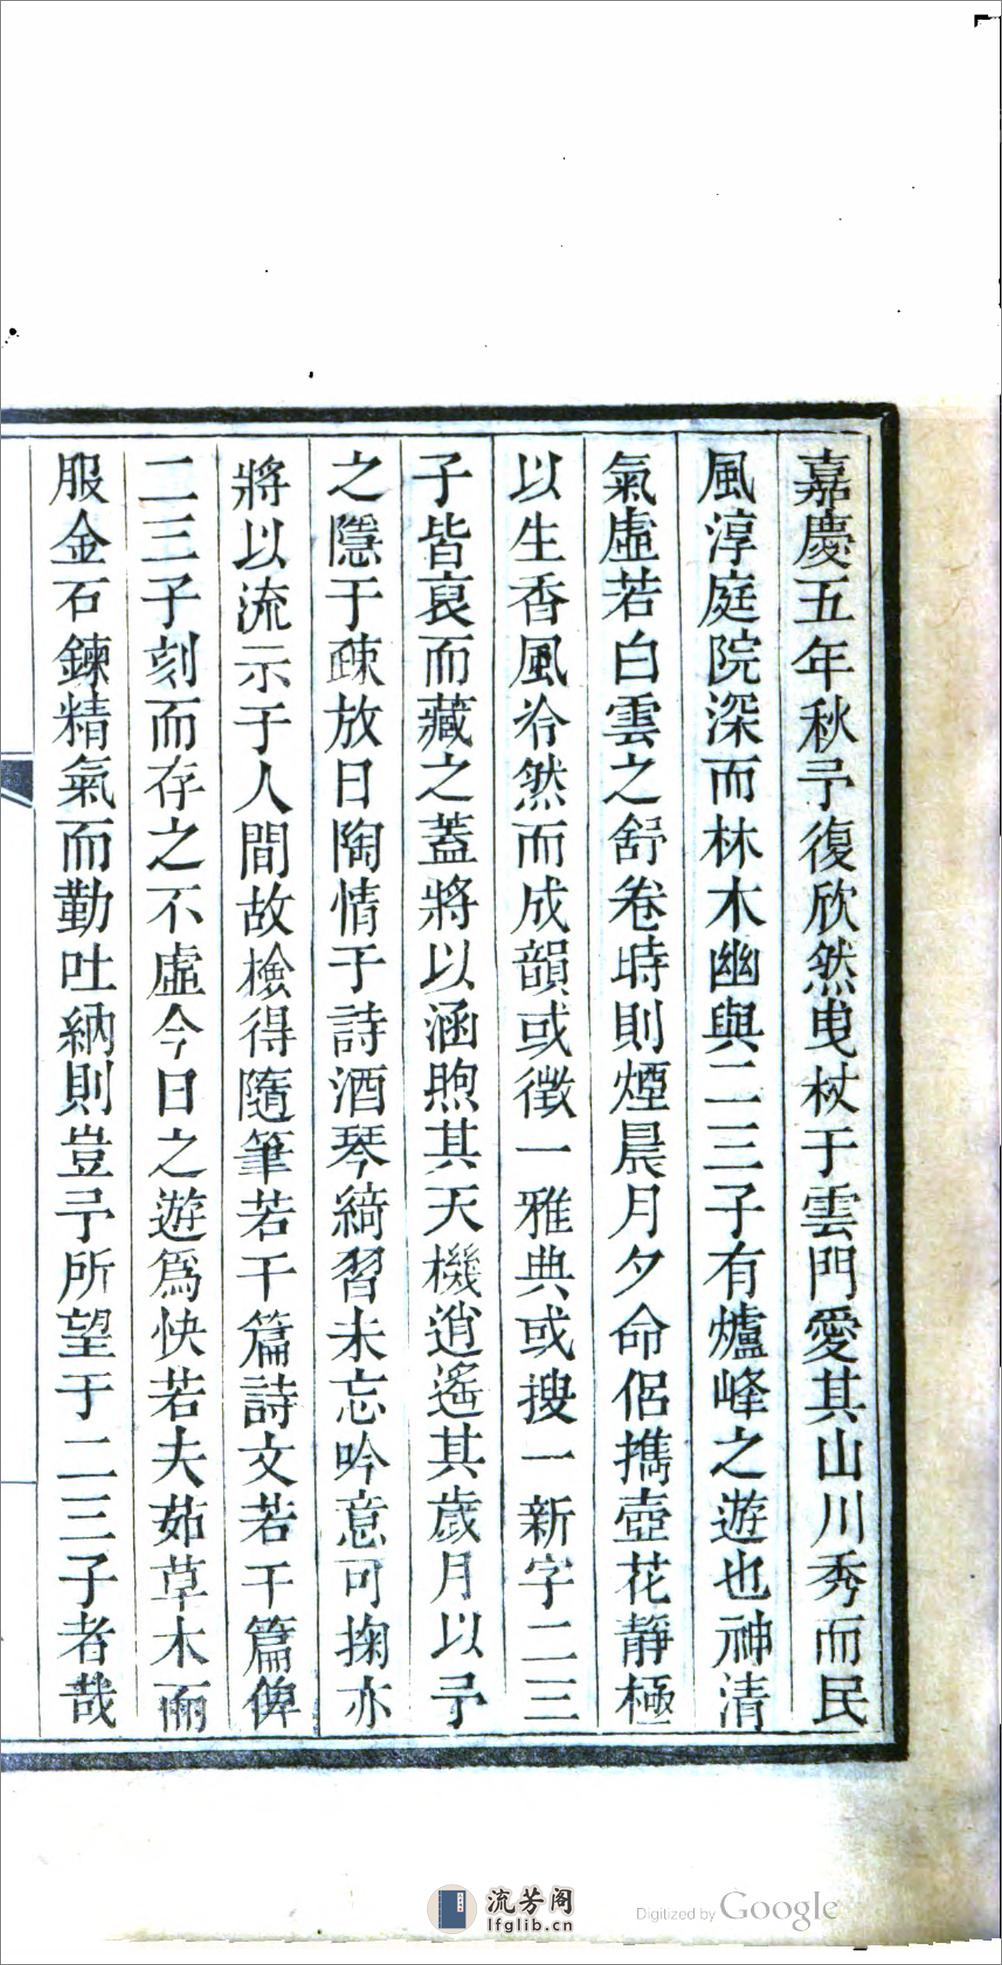 嘉慶五年秋予復欣然曳杖于雲門愛其山川秀而民
風淳庭院深而林木幽與二三子有爐峰之遊也神清
氣虛若白雲之舒卷時則煙晨月夕命侶攜壺花靜極
以生香風泠然而成韻或徵一雅典或搜一新字二三
子皆裒而藏之蓋將以涵煦其天機逍遙其歲月以予
之隱于疎放日陶情于詩酒琴綺習未忘吟意可掬亦
將以流示于人間故檢得隨筆若干篇詩文若干篇俾
二三子刻而存之不虛今日之遊爲快若夫茹草木而
服金石鍊精氣而勤吐納則豈予所望于二三子者哉
流芳阁
lfglib.cn
Digitized by Google